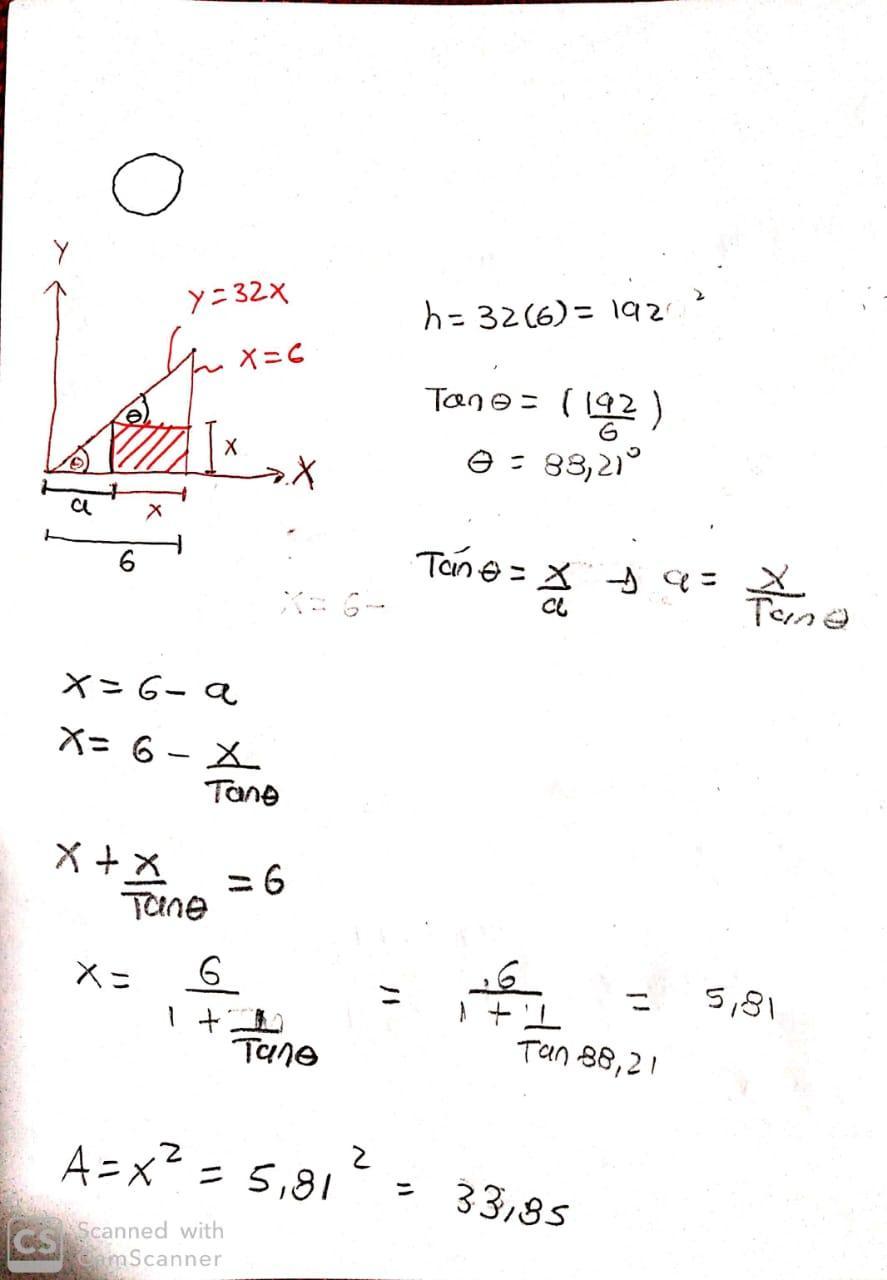 Y
y=32x
x=6
θ
θ
x
X
a
x
6
h= 32(6)= 192 ²
Tan θ = (192/6)
θ = 88,21°
Tan θ = x/a → a = x/Tan θ
X= 6-
x=6- a
x= 6 - x/Tanθ
x + x/Tanθ = 6
x= 6/(1 + 1/Tanθ) = 6/(1 + 1/Tan 88,21) = 5,81
A=x² = 5,81² = 33,85
CS Scanned with
CamScanner